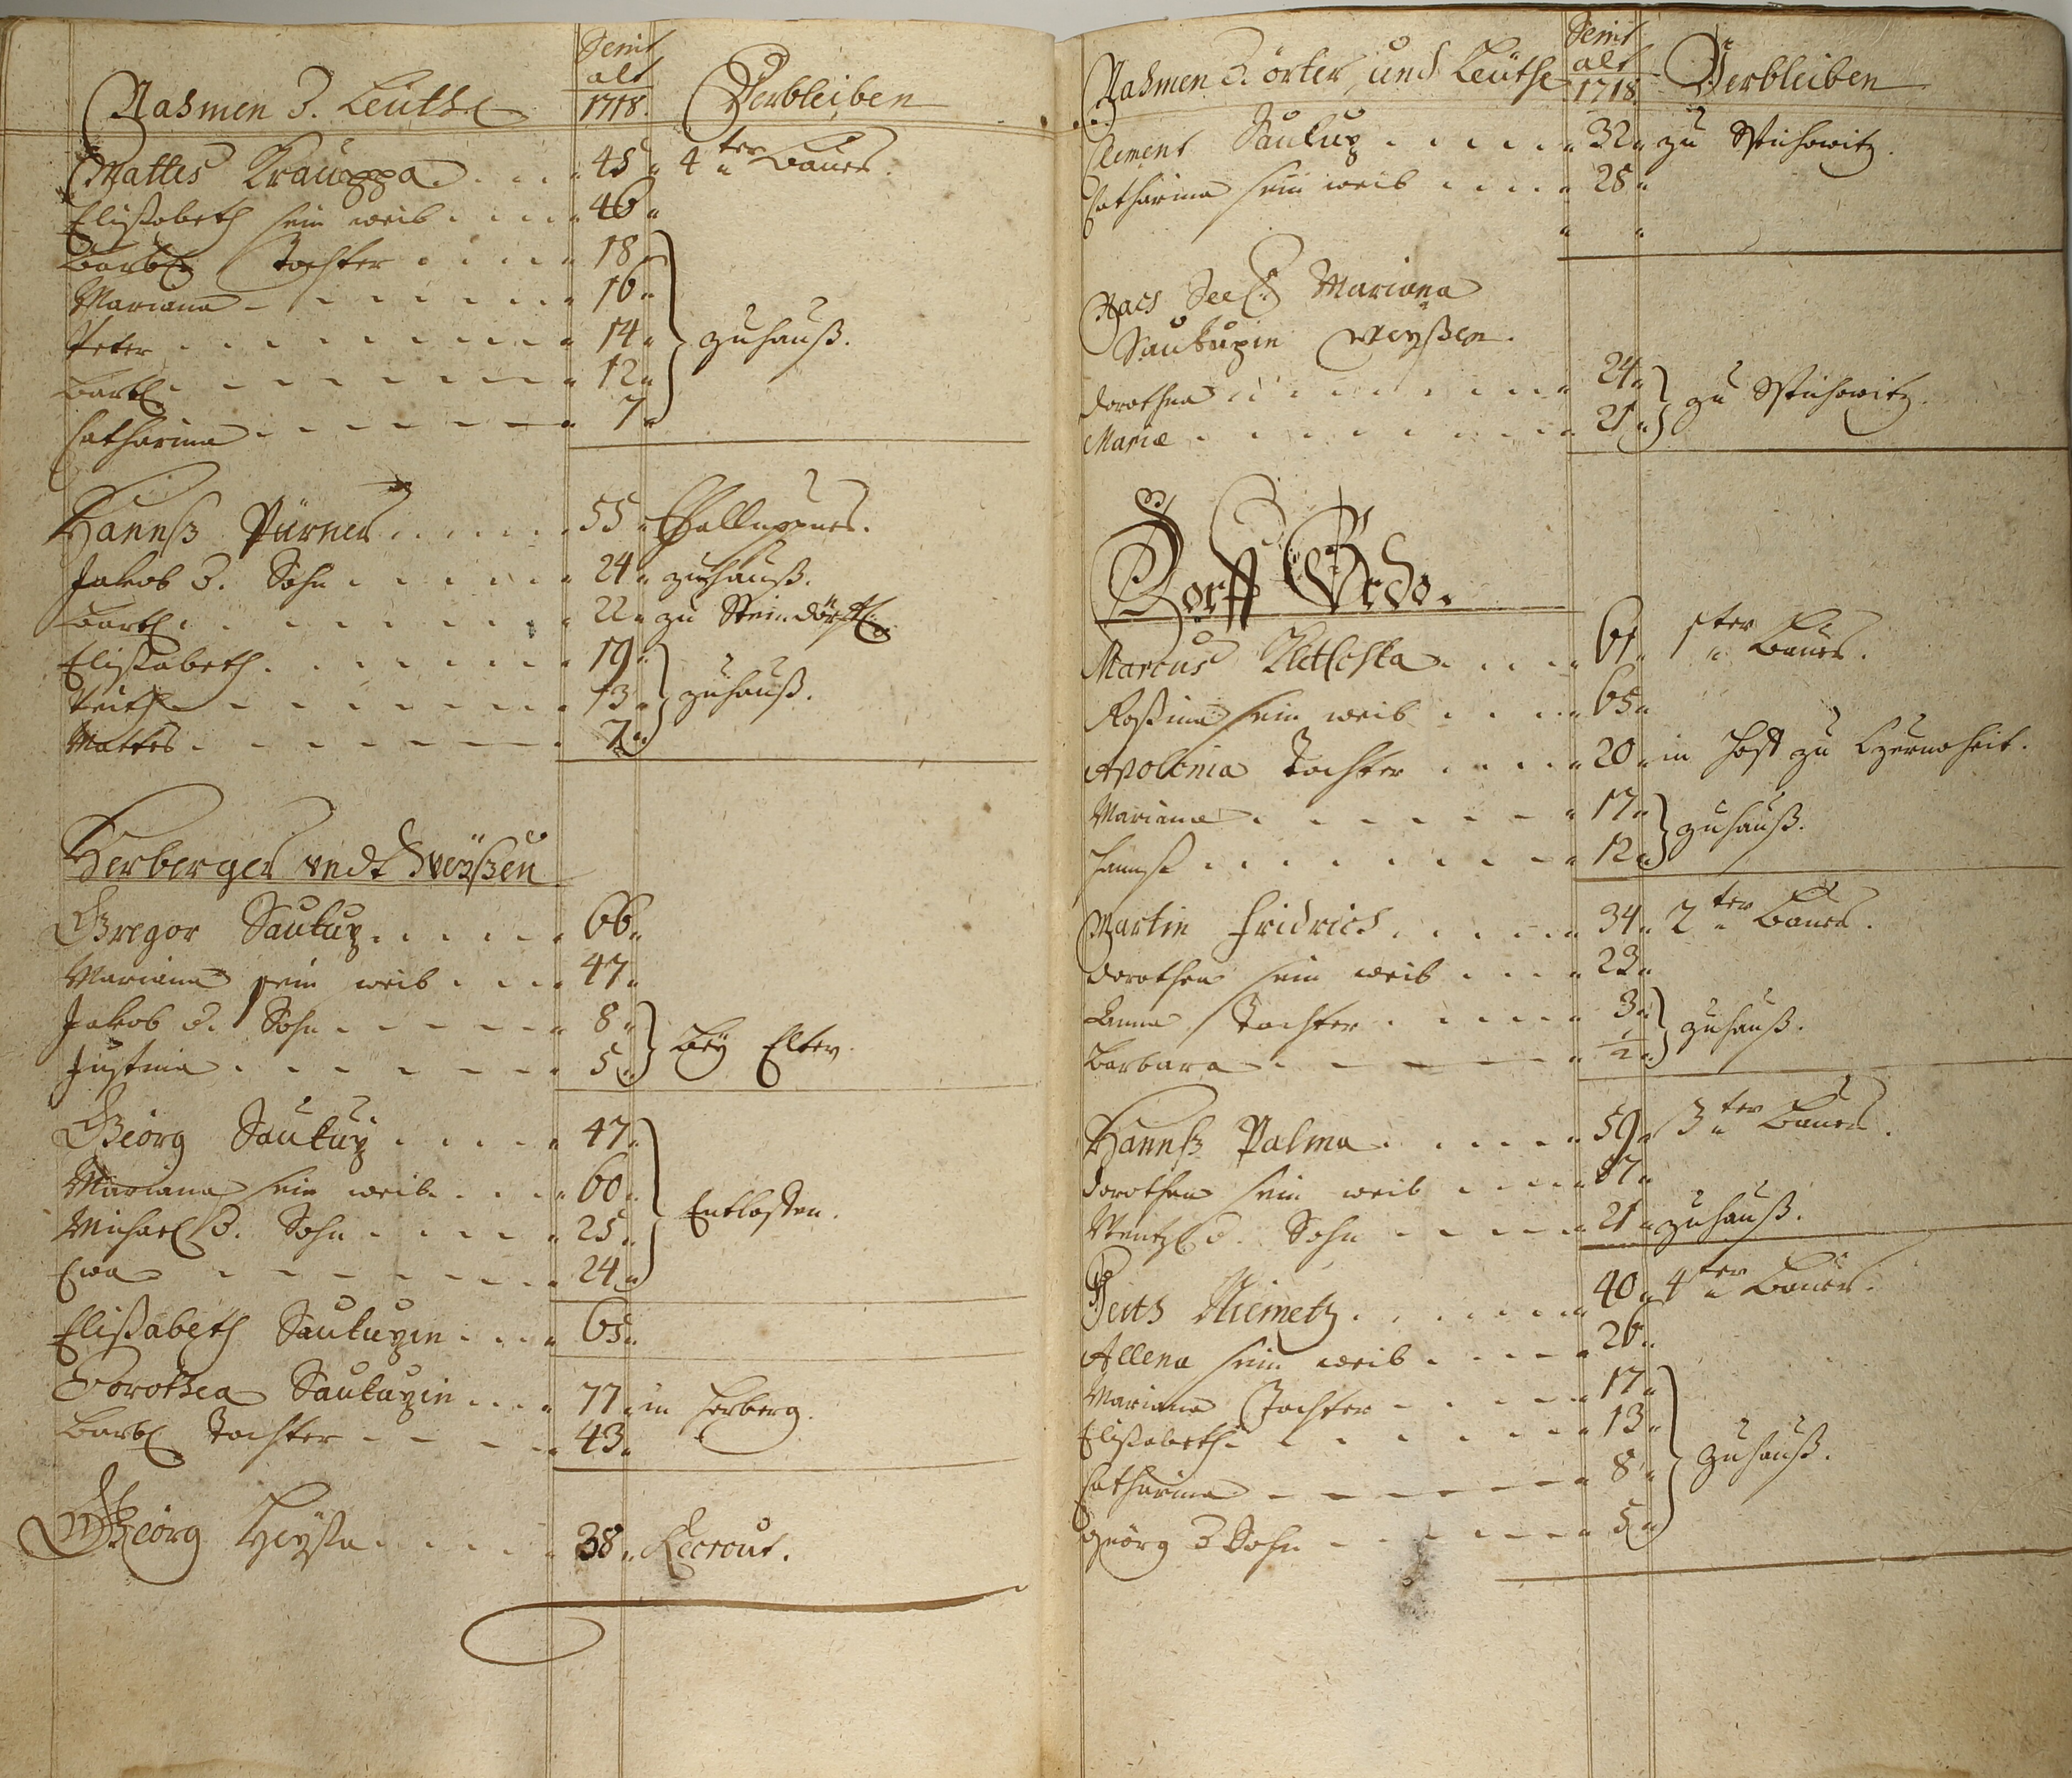 Nahmen d. Leuthe Seint alt 1718. Verbleiben
Mattes Krauppa 45 4ter Bauer.
Elisabeth sein weib 46
Barbl Tochter 18
Mariana 16
Peter 14 zuhauß.
Bartl 12
Catharina 7
Hannß Pürner 55 Challuppner.
Jakob d. Sohn 24 zuhauß.
Bartl 22 zu Steindörfl.
Elisabeth 19
Veith 13 zuhauß.
Mattes 7
Herberger undt Weyßen
Gregor Saukup 66
Mariana sein weib 47
Jakob d. Sohn 8
Justina 5 bey Elter.
Georg Saukup 47
Mariana sein weib 60
Michael d. Sohn 25 Entloffen.
Ewa 24
Elißabeth Saukupin 65
Dorothea Saukupin 77 in Herberg.
Barbl Tochter 43
Georg 38 Recrout.
Nahmen d. örter und Leuthe Seint alt 1718 Verbleiben
Clement Saukup 32 zu
Catharina sein weib 28
Nach Seel. Mariana
Saukupin Weyßen.
Dorothea 24
Maria 21 zu
Dorff Brdo.
Marcus 61 1ter Bauer.
Roßina sein weib 65
Apolonia Tochter 20 in Hoff zu
Mariana 17
Hannß 12 zuhauß.
Martin Fridrich 34 2ter Bauer.
Dorothea sein weib 23
Anna Tochter 3
Barbara 1/2 zuhauß.
Hannß Palma 59 3ter Bauer.
Dorothea sein weib 57
Wentzl d. Sohn 21 zuhauß.
Veith Niemetz 40 4ter Bauer.
Allena sein weib 26
Mariana Tochter 17
Elisabeth 13
Catharina 8 Zuhauß.
Geörg d Sohn 5